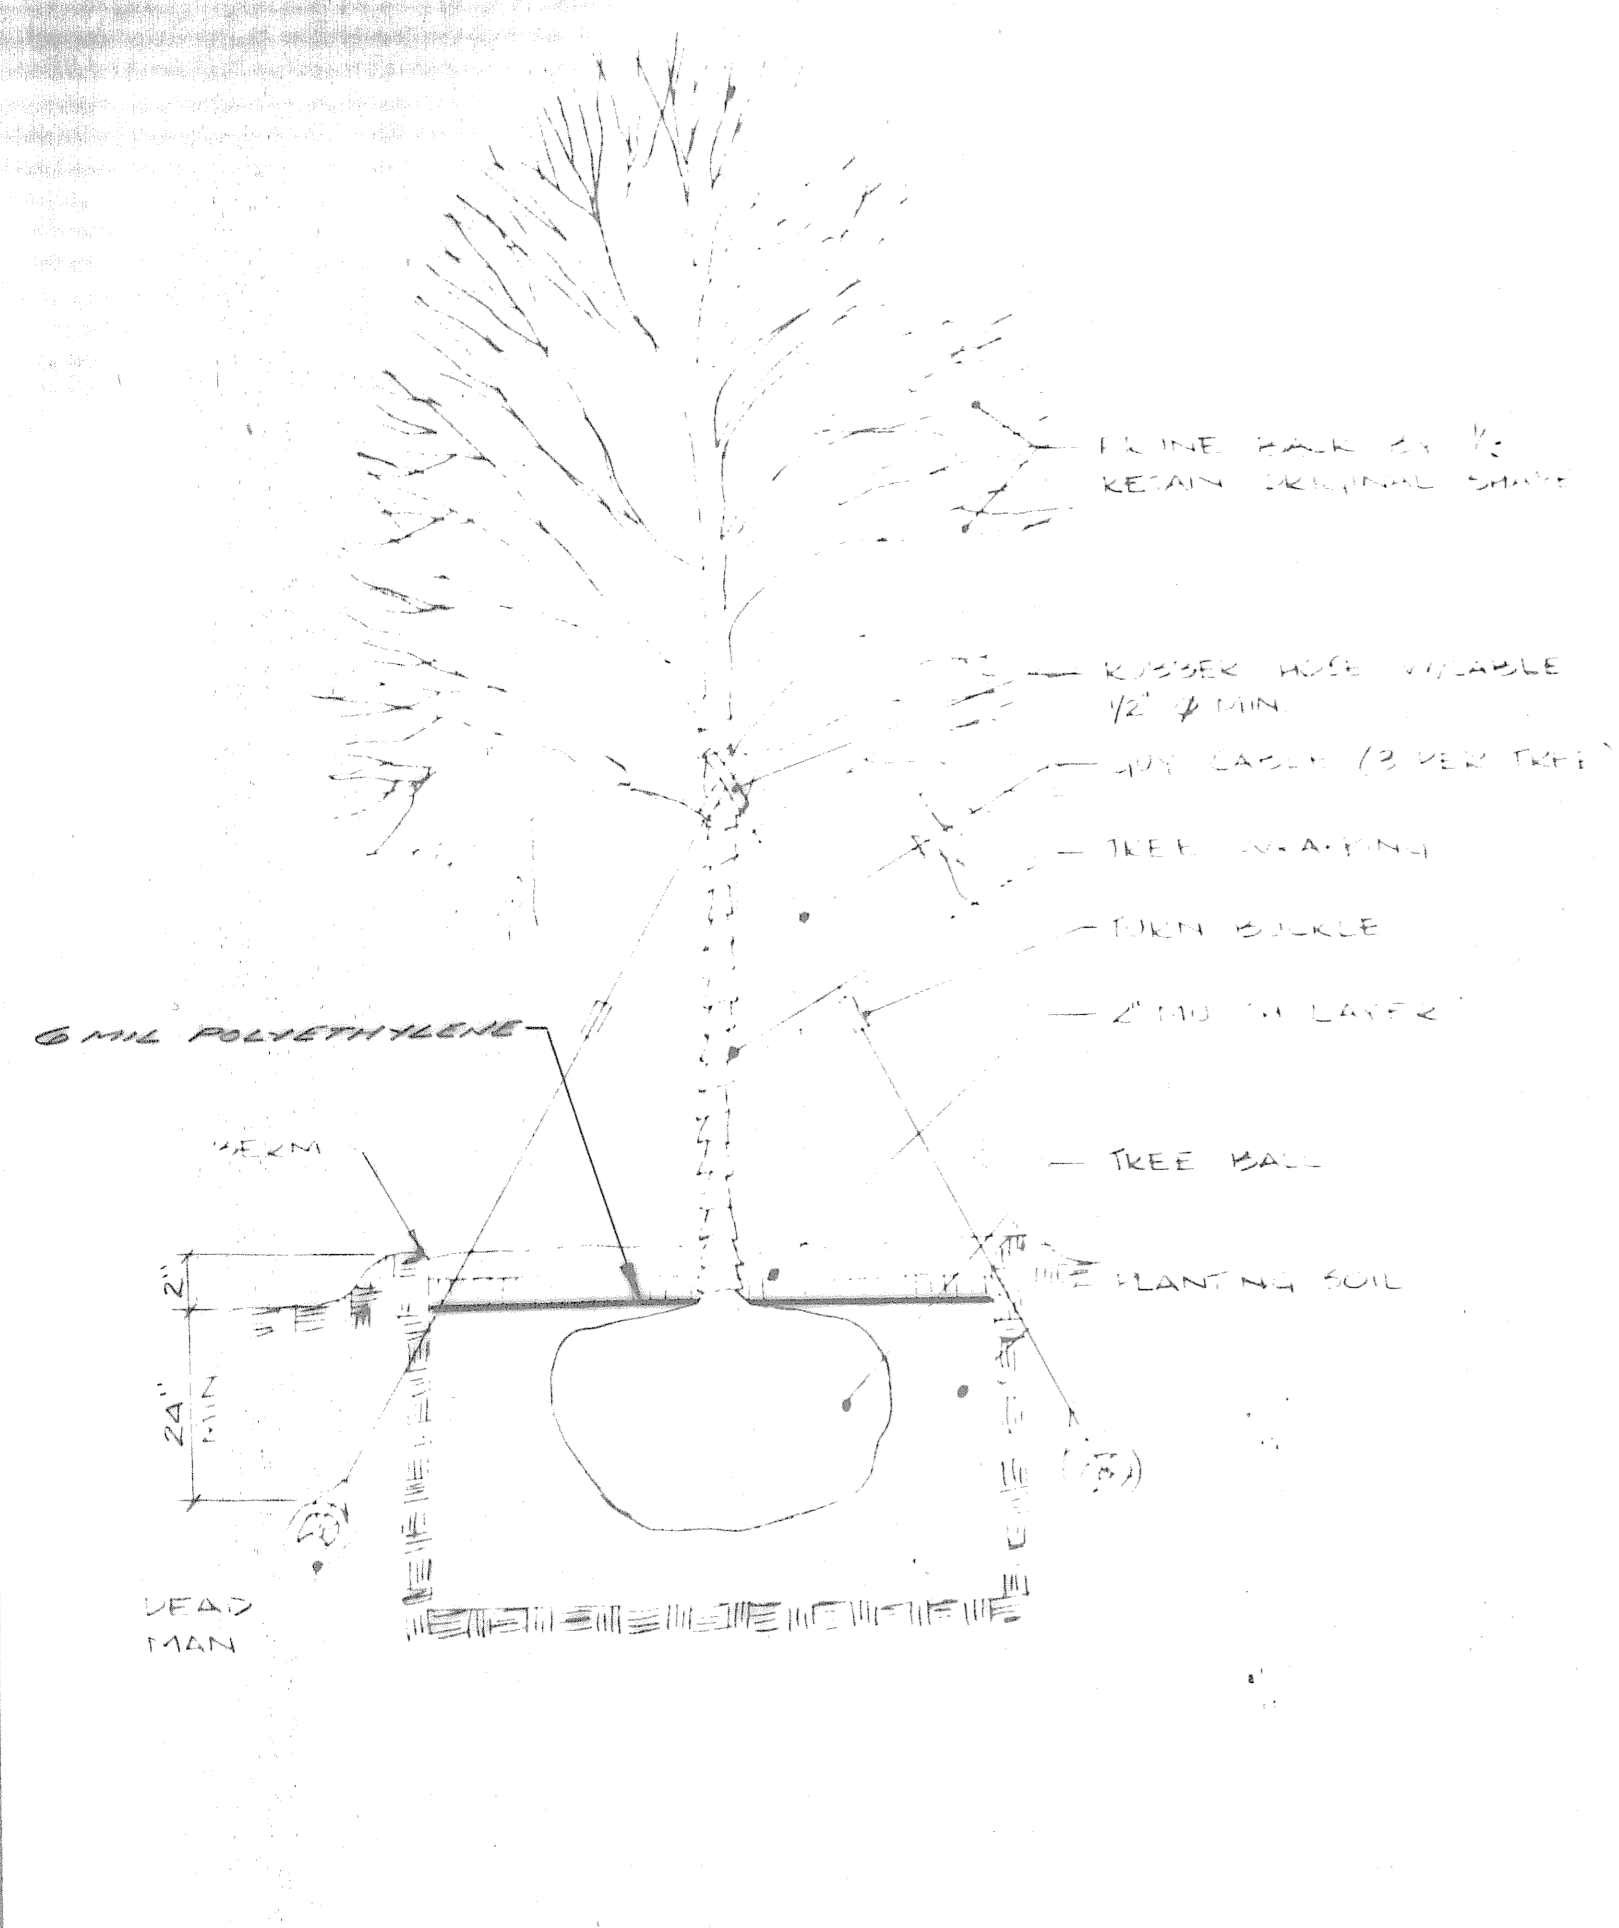 PRUNE BACK BY
RETAIN ORIGINAL SHAPE
RUBBER HOSE W/CABLE
1/2" ∅ MIN.
GUY CABLE (3 PER TREE)
TREE WRAPPING
TURN BUCKLE
2" MULCH LAYER
6 MIL POLYETHYLENE
BERM
TREE BALL
2"
PLANTING SOIL
24"
MIN
DEAD
MAN